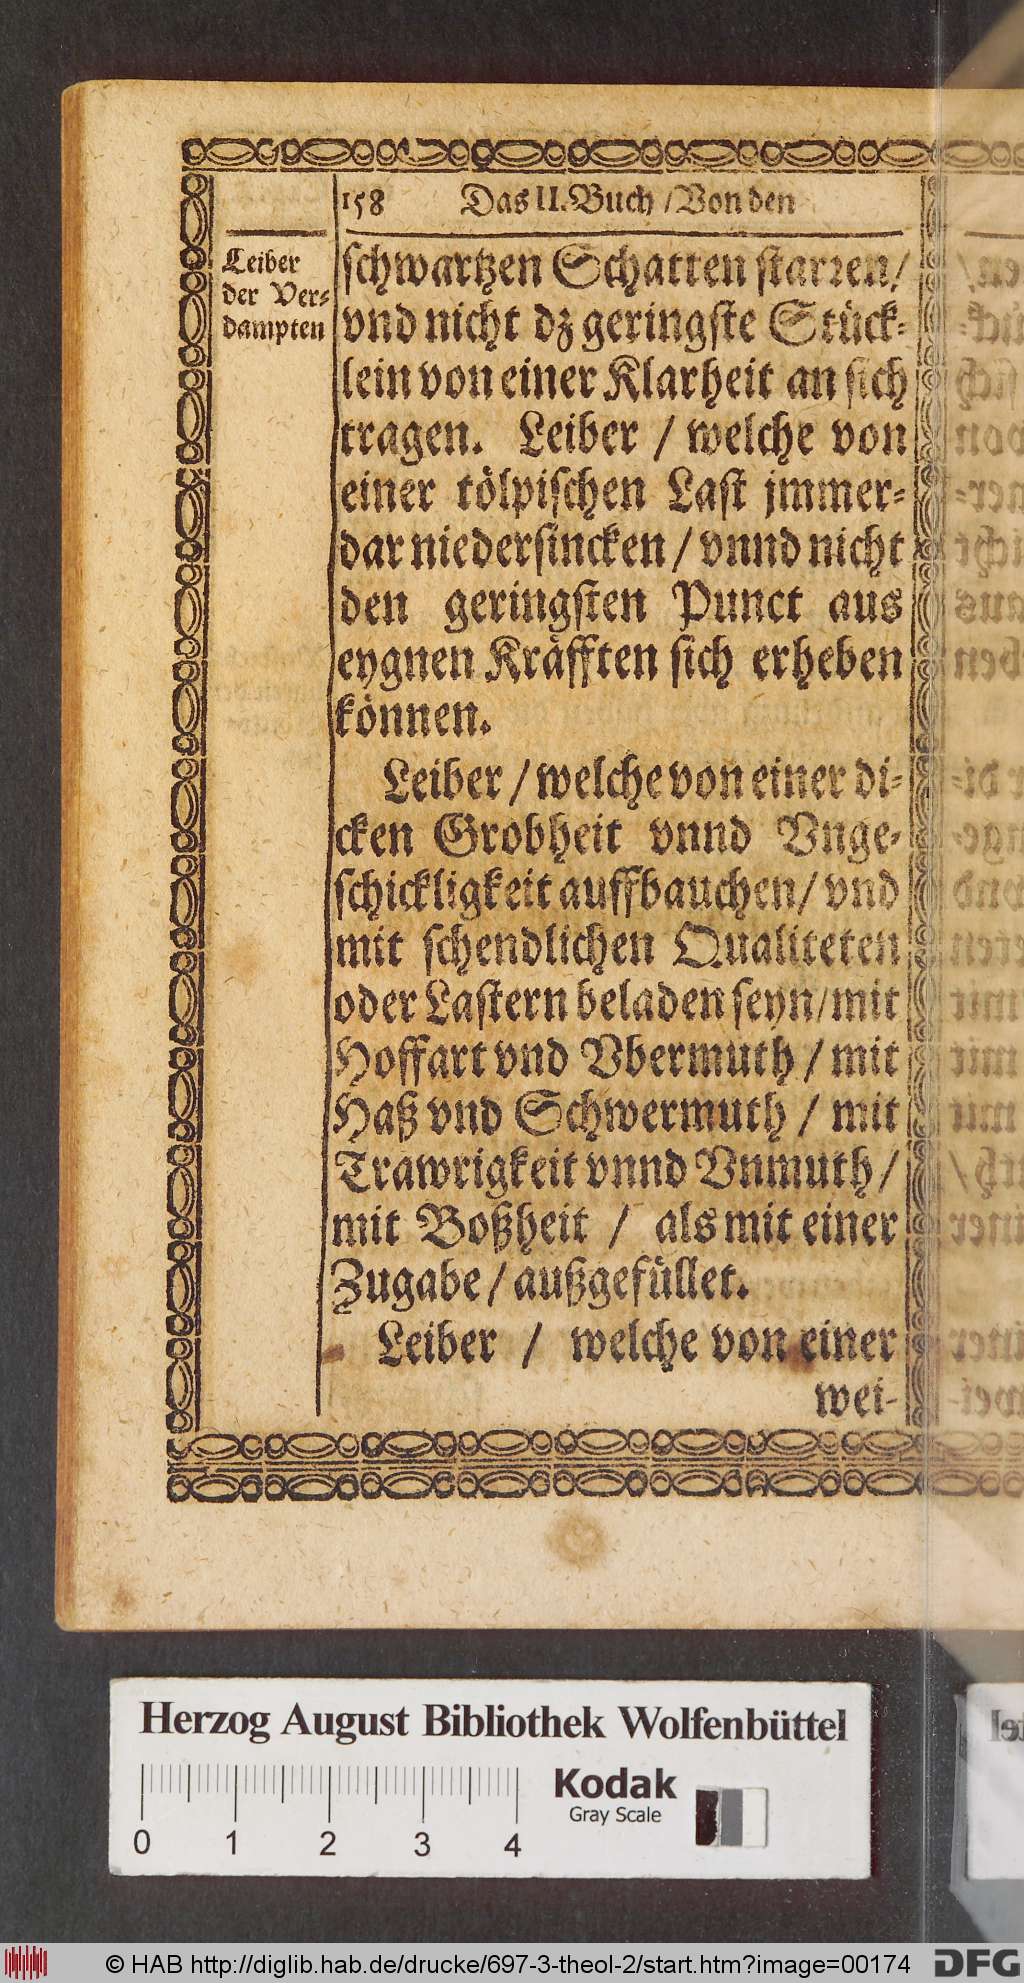 158 Das II. Buch / Von den
Leiber
der Ver-
dampten
schwartzen Schatten starren /
vnd nicht dz geringste Stück-
lein von einer Klarheit an sich
tragen. Leiber / welche von
einer tölpischen Last jmmer-
dar niedersincken / vnnd nicht
den geringsten Punct aus
eygnen Kräfften sich erheben
können.
Leiber / welche von einer di-
cken Grobheit vnnd Vnge-
schickligkeit auffbauchen / vnd
mit schendlichen Qualiteten
oder Lastern beladen seyn / mit
Hoffart vnd Vbermuth / mit
Haß vnd Schwermuth / mit
Trawrigkeit vnnd Vnmuth /
mit Boßheit / als mit einer
Zugabe / außgefüllet.
Leiber / welche von einer
wei-
Herzog August Bibliothek Wolfenbüttel
Kodak
Gray Scale
0 1 2 3 4
© HAB http://diglib.hab.de/drucke/697-3-theol-2/start.htm?image=00174
DFG